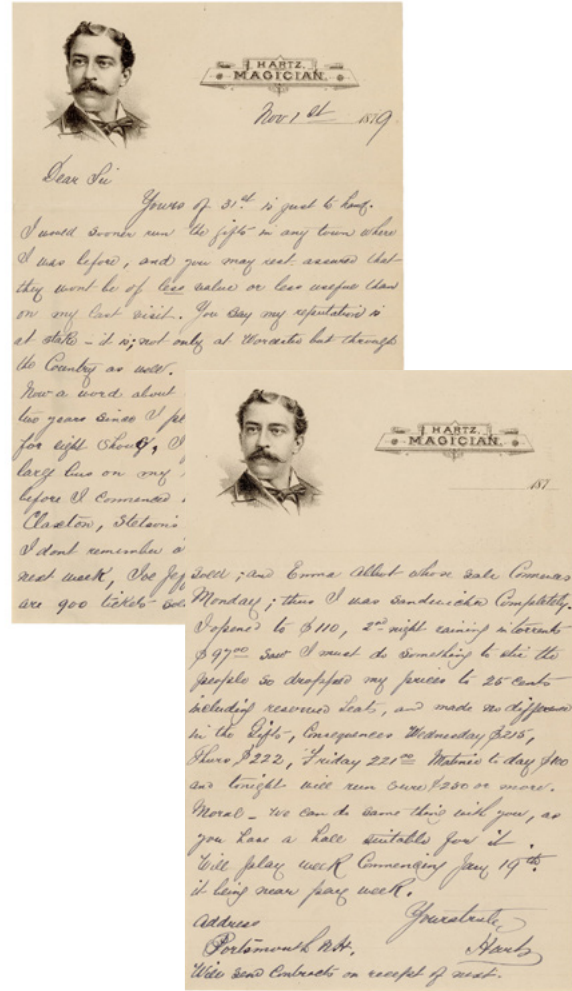 HARTZ.
MAGICIAN.
Nov 1st 1879
Dear Sir
Yours of 31st is just to hand.
I would sooner run the gifts in any town where
I was before, and you may rest assured that
they wont be of less value or less useful than
on my last visit. You say my reputation is
at stake - it is; not only at Worcester but through
the Country as well.
Now a word about
two years since I
for eight Shows, I
large hus on my
before I Commenced
Claxton, Stetson's
I dont remember
next week, Joe Jeff
are 900 tickets sol
HARTZ.
MAGICIAN.
187
sold; and Emma Abbott whose sale Commences
Monday; thus I was sandwiched Completely.
I opened to $110, 2nd night raining in torrents
$97.00 saw I must do something to stir the
people so dropped my prices to 25 cents
including reserved seats, and made no difference
in the Gifts, Consequences Wednesday $215,
Thurs $222, Friday 221.00 Matinee to day $100
and tonight will run sure $250 or more.
Moral - we can do same thing with you, as
you have a hall suitable for it.
Will play week Commencing Jany 19th
it being near pay week.
Address
Yours truly
Portsmouth N.H.
Hartz
Will send Contracts on receipt of next.